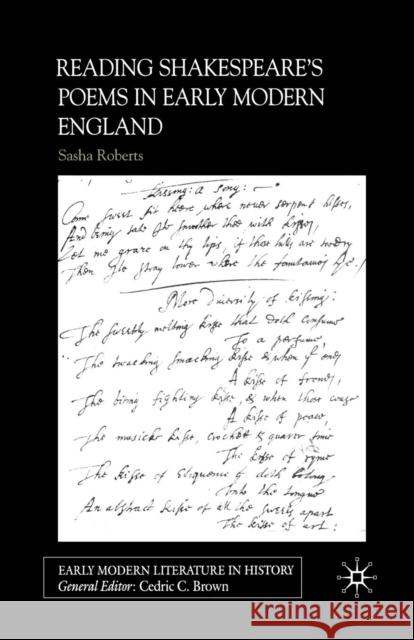 READING SHAKESPEARE'S
POEMS IN EARLY MODERN
ENGLAND
Sasha Roberts
Kissing: a Song:
Come sweet sit heere where never serpent hisses,
And being sate Ile smoother thee with kisses,
Let me graze on thy lips, if those hills are
Then Ile stray lower where the fountaines lye.
More Diversity of kissing:
The sweetly melting kisse that doth consume
To a perfume,
The smacking kisse & when
A kisse of
The fighting kisse, & when those
A kisse of peace,
The musicke kisse, crochet & quaver time
The kisse of
The kisse of Eloquence doth belong
Unto the tongue
An abstract kisse of all the sweets apart
The kisse of art:
EARLY MODERN LITERATURE IN HISTORY
General Editor: Cedric C. Brown